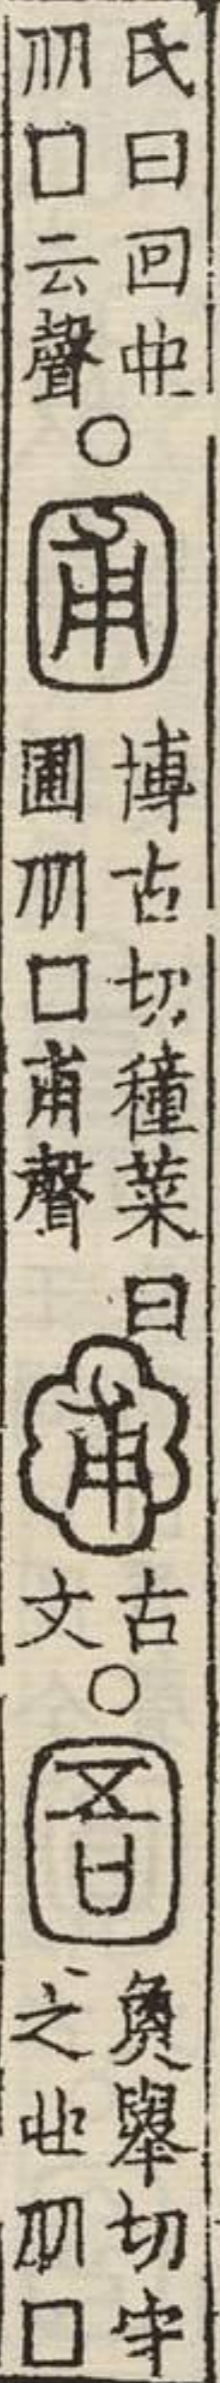 氏曰回也
从囗云聲
○
圃
博古切種菜曰
圃从囗甫聲
圃
古
文
○
圄
魚舉切守
之也从囗